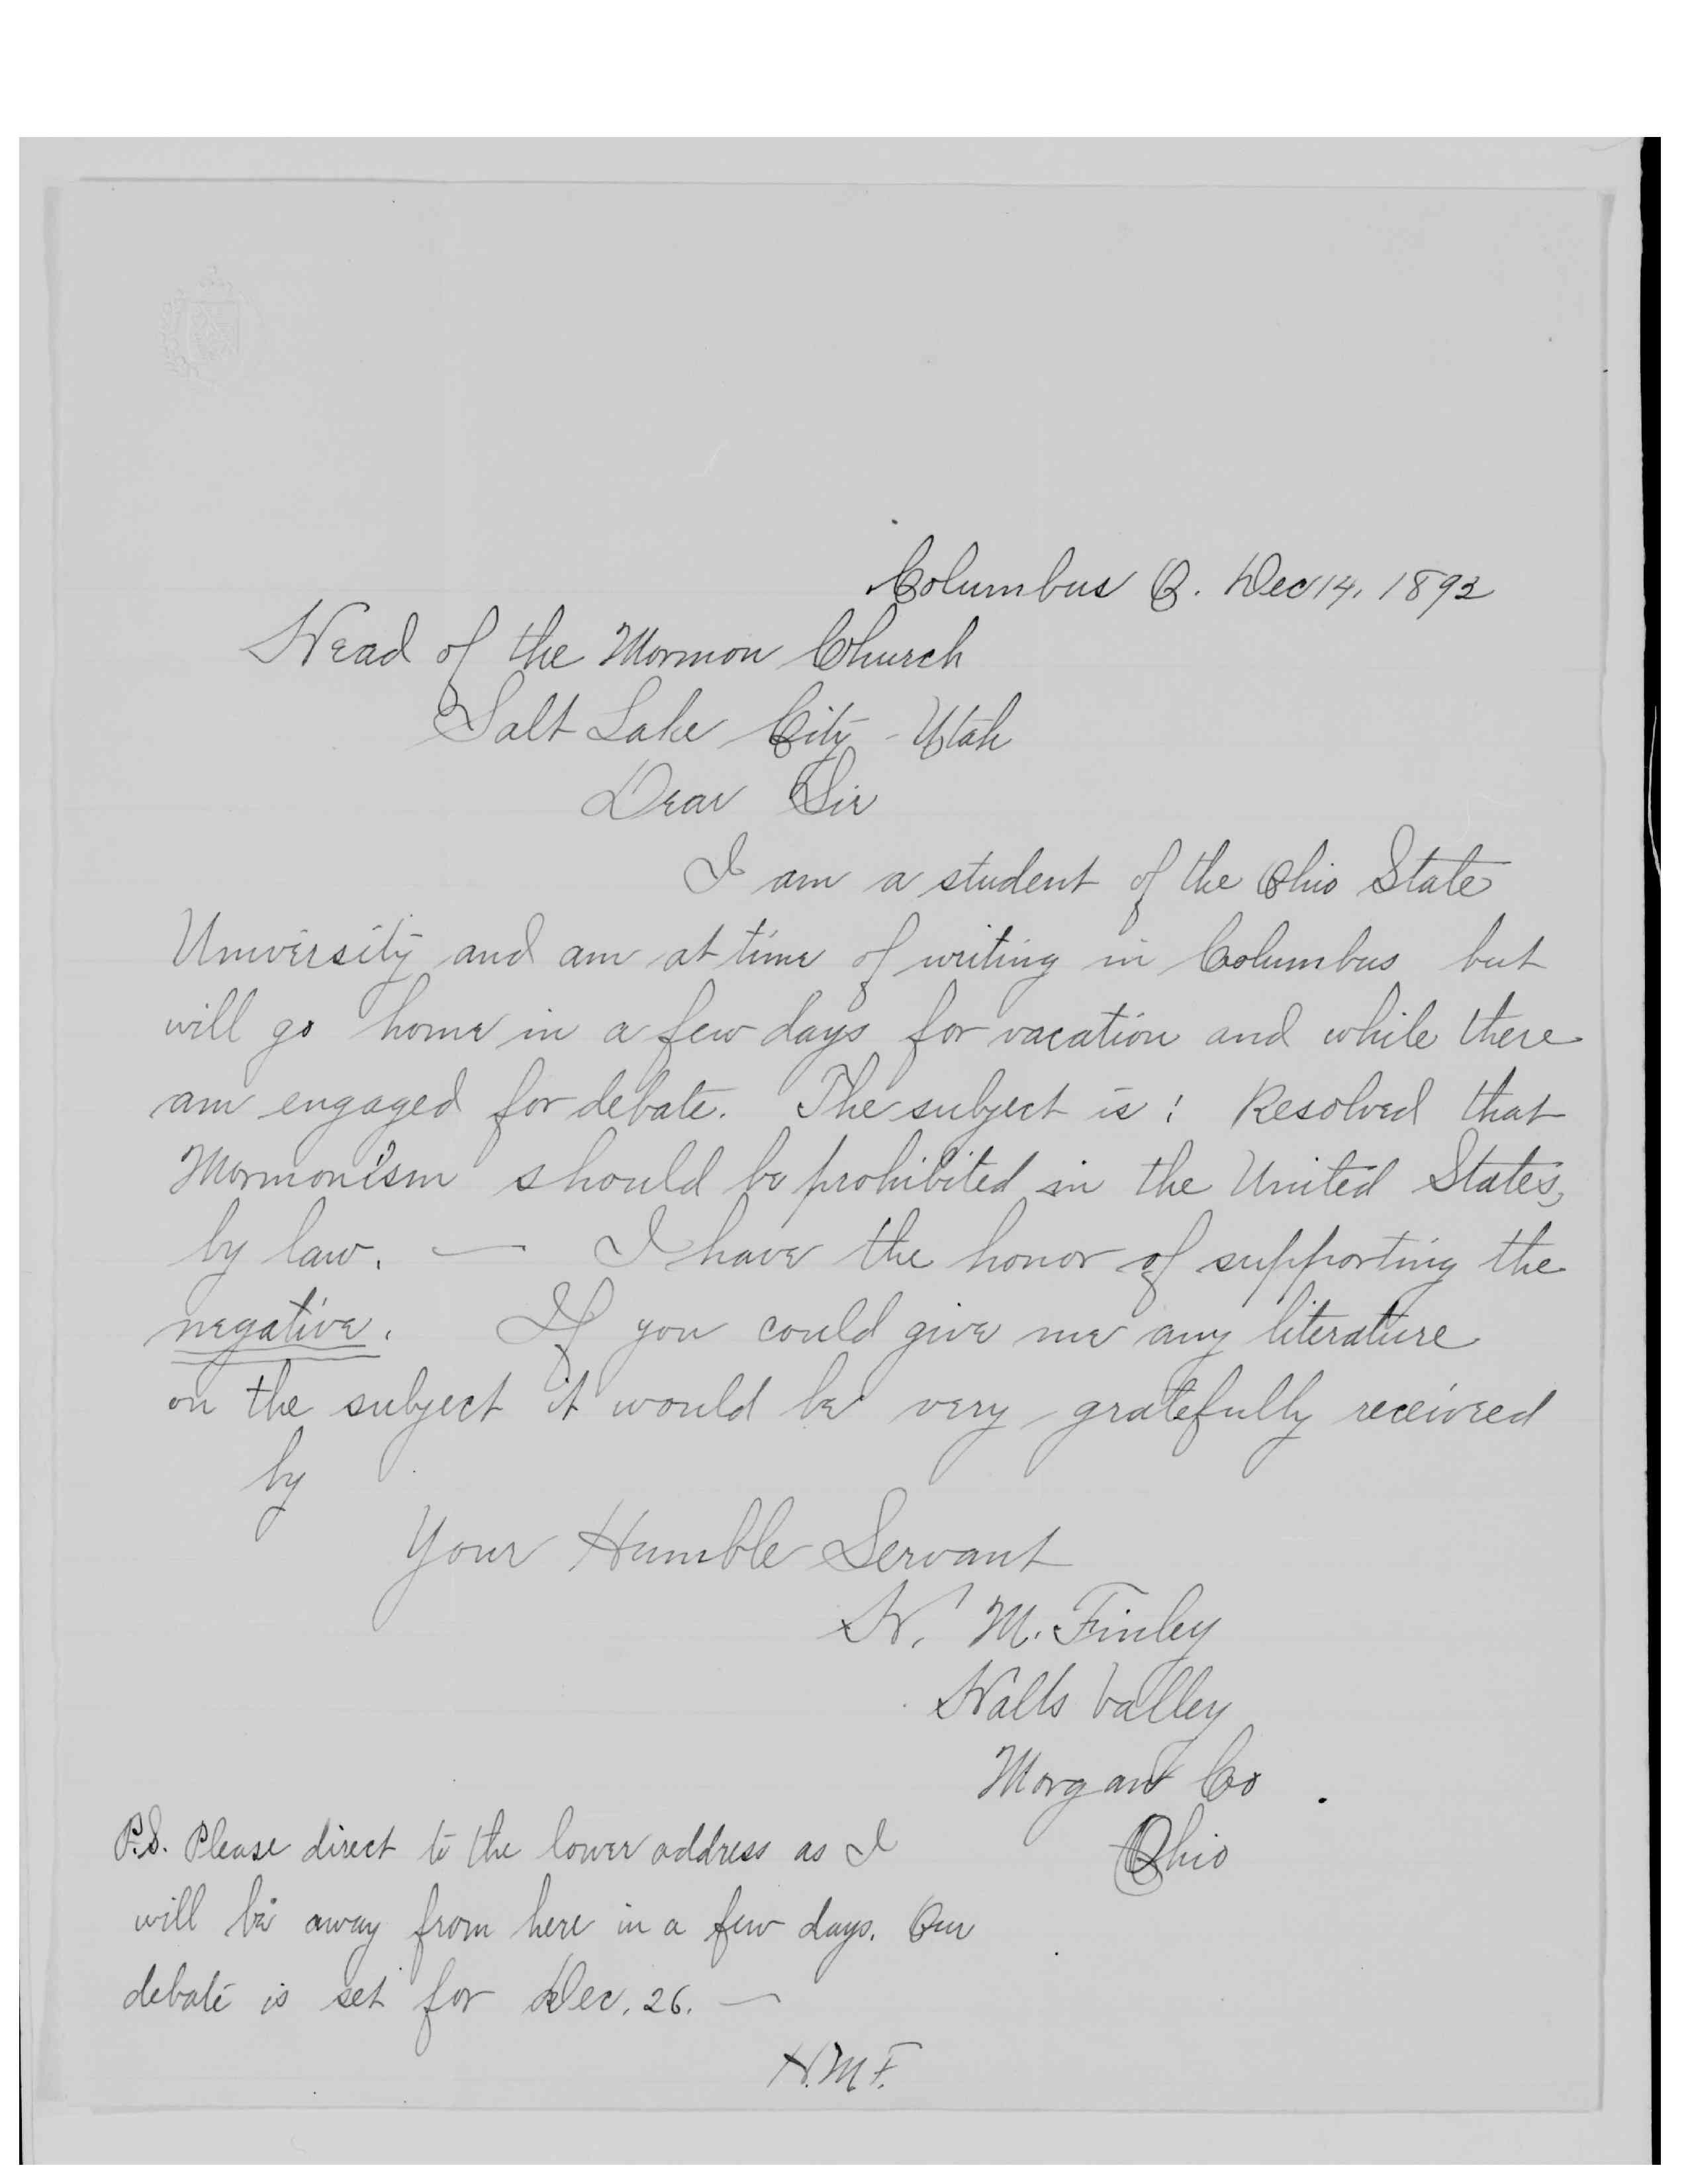 Columbus O. Dec 14, 1892
Head of the Mormon Church
Salt Lake City - Utah
Dear Sir
I am a student of the Ohio State
University and am at time of writing in Columbus but
will go home in a few days for vacation and while there
am engaged for debate. The subject is: Resolved that
Mormonism should be prohibited in the United States,
by law. — I have the honor of supporting the
negative. If you could give me any literature
on the subject it would be very gratefully received
by
Your Humble Servant
H. M. Finley
Halls Valley
Morgan Co
Ohio
P.S. Please direct to the lower address as I
will be away from here in a few days. Our
debate is set for Dec. 26. —
H. M F.